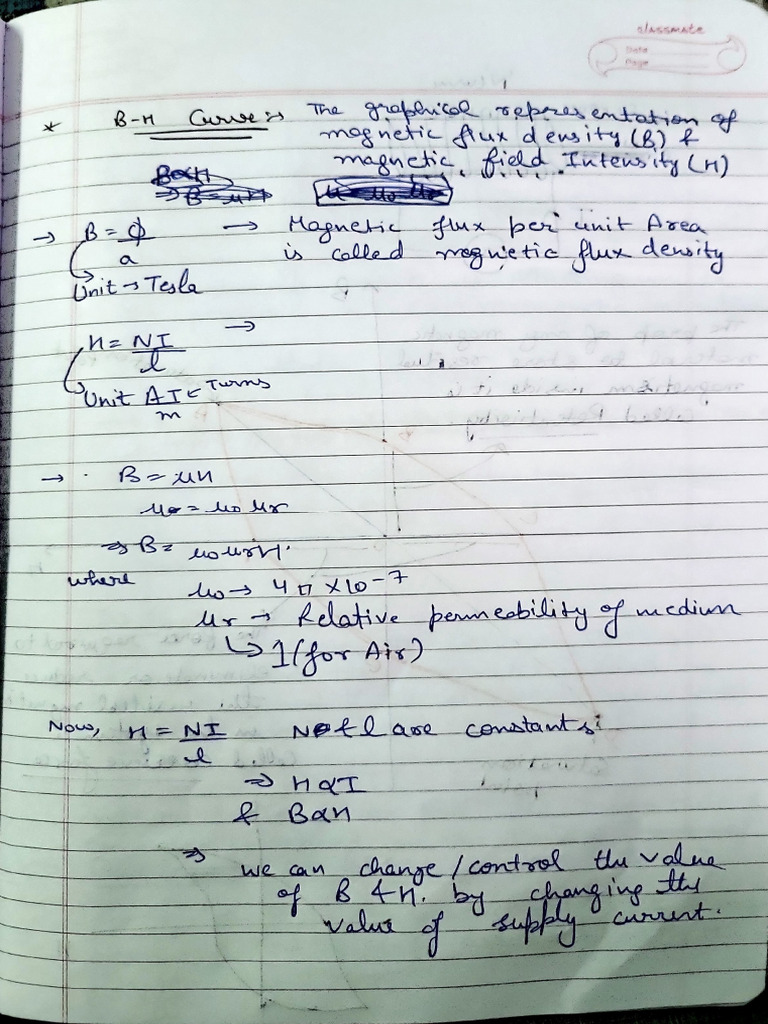 classmate
Date
Page
* B-H Curve :- The graphical representation of
magnetic flux density (B) &
magnetic field Intensity (H)
B∝H
⇒ B = μH
μ = μ0 μr
→ B = ϕ/a → Magnetic flux per unit Area
is called magnetic flux density
Unit → Tesla
H = NI/l →
Unit AT/m ← Turns
→ B = μH
μ = μ0 μr
⇒ B = μ0 μr H.
where μ0 → 4π × 10-7
μr → Relative permeability of medium
↳ 1 (for Air)
Now, H = NI/l N & l are constants.
⇒ H ∝ I
& B ∝ H
⇒ we can change / control the value
of B & H. by changing the
value of supply current.